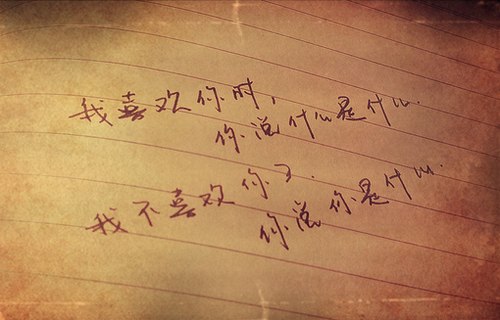 我喜欢你时，
你说什么是什么.
我不喜欢你了.
你说你是什么.